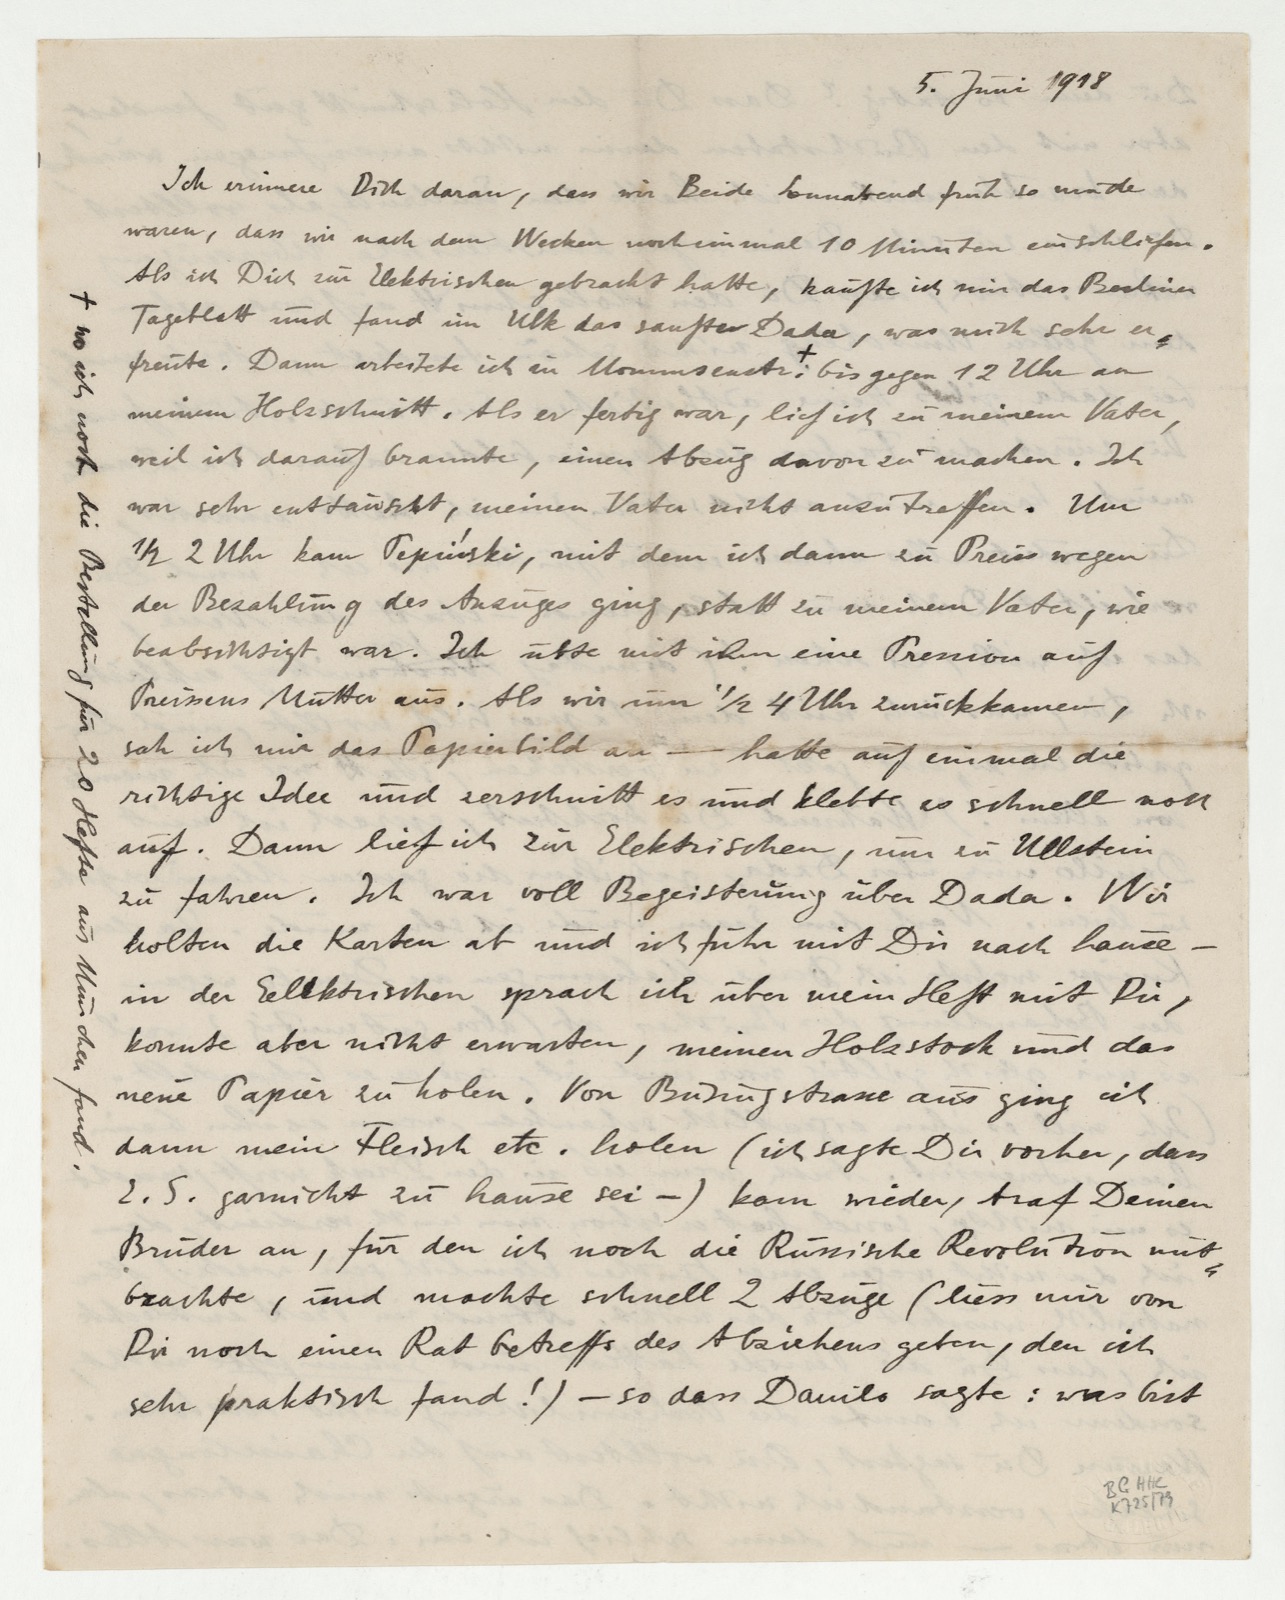 5. Juni 1918
Ich erinnere Dich daran, dass wir Beide Sonnabend früh so müde
waren, dass wir nach dem Wecken noch einmal 10 Minuten einschliefen.
Als ich Dich zur Elektrischen gebracht hatte, kaufte ich mir das Berliner
Tageblatt und fand im Ulk das sanfte Dada, was mich sehr er=
freute. Dann arbeitete ich in Mommsenstr.+ bis gegen 12 Uhr an
meinem Holzschnitt. Als er fertig war, lief ich zu meinem Vater,
weil ich darauf brannte, einen Abzug davon zu machen. Ich
war sehr enttäuscht, meinen Vater nicht anzutreffen. Um
1/2 2 Uhr kam Tepinski, mit dem ich dann zu Preiss wegen
der Bezahlung des Anzuges ging, statt zu meinem Vater, wie
beabsichtigt war. Ich übte mit ihm eine Pression auf
Preissens Mutter aus. Als wir um 1/2 4 Uhr zurückkamen,
sah ich mir das Papierbild an — hatte auf einmal die
richtige Idee und zerschnitt es und klebte es schnell noch
auf. Dann lief ich zur Elektrischen, um zu Ullstein
zu fahren. Ich war voll Begeisterung über Dada. Wir
holten die Karten ab und ich fuhr mit Dir nach hause –
in der Eelektrischen sprach ich über mein Heft mit Dir,
konnte aber nicht erwarten, meinen Holzstock und das
neue Papier zu holen. Von Büsingstrasse aus ging ich
dann mein Fleisch etc. holen (ich sagte Dir vorher, dass
L. S. garnicht zu hause sei –) kam wieder, traf Deinen
Bruder an, für den ich noch die Russische Revolution mit=
brachte, und machte schnell 2 Abzüge (liess mir von
Dir noch einen Rat betreffs des Abziehens geben, den ich
sehr praktisch fand!) – so dass Danilo sagte: was bist
+ wo ich noch die Bestellung für 20 Hefte aus München fand.
BG HHC
K725/79